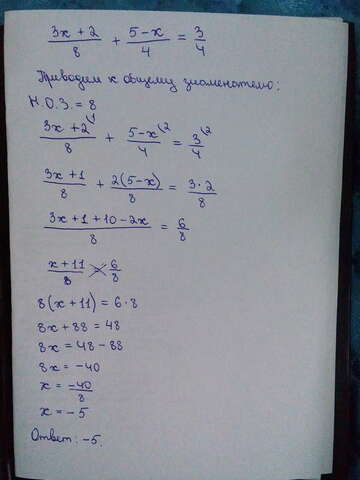 (3x+2)/8 + (5-x)/4 = 3/4
Приводим к общему знаменателю:
Н.О.З. = 8
(3x+2)/8 \1 + (5-x)/4 \2 = 3/4 \2
(3x+1)/8 + 2(5-x)/8 = 3·2/8
(3x+1+10-2x)/8 = 6/8
(x+11)/8 = 6/8
8(x+11) = 6·8
8x+88 = 48
8x = 48-88
8x = -40
x = -40/8
x = -5
Ответ: -5.